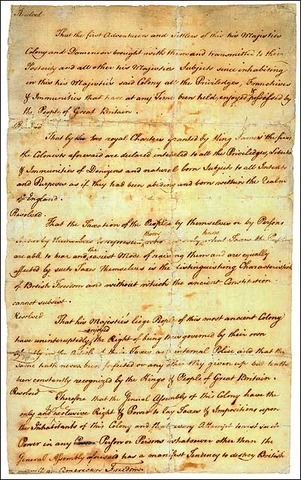 Resolved
That the first Adventurers and Settlers of this his Majesties
Colony and Dominion brought with them and transmitted to their
Posterity and all other his Majesties Subjects since inhabiting
in this his Majesties said Colony all the Priviledges, Franchises
& Immunities that have at any Time been held, enjoyed & possessed by
the People of Great Britain.
That by the two royal Charters granted by King James the first
the Colonists aforesaid are declared intituled to all the Priviledges, Liberties
& Immunities of Denizens and natural born Subjects to all Intents
and Purposes as if they had been abiding and born within the Realm
of England.
Resolved
That the Taxation of the People by themselves or by Persons
chosen by themselves to represent
they have
Taxes the People
are able to bear and easiest Mode of raising them and are equally
affected by such Taxes themselves is the distinguishing Characteristick
of British Freedom and without which the ancient Constitution
cannot subsist.
Resolved
That his Majesties liege People of this most ancient Colony
have uninterruptedly enjoyed the Right of being thus governed by their own
Assembly in the Article of their Taxes and internal Police and that the
same hath never been forfeited or any other Way given up but hath
been constantly recognized by the Kings & People of Great Britain.
Resolved
Therefore that the General Assembly of this Colony have the
only and exclusive Right & Power to lay Taxes & Impositions upon
the Inhabitants of this Colony and that every Attempt to vest such
Power in any Person or Persons whatsoever other than the
General Assembly aforesaid has a manifest Tendency to destroy British
as well as American Freedom.